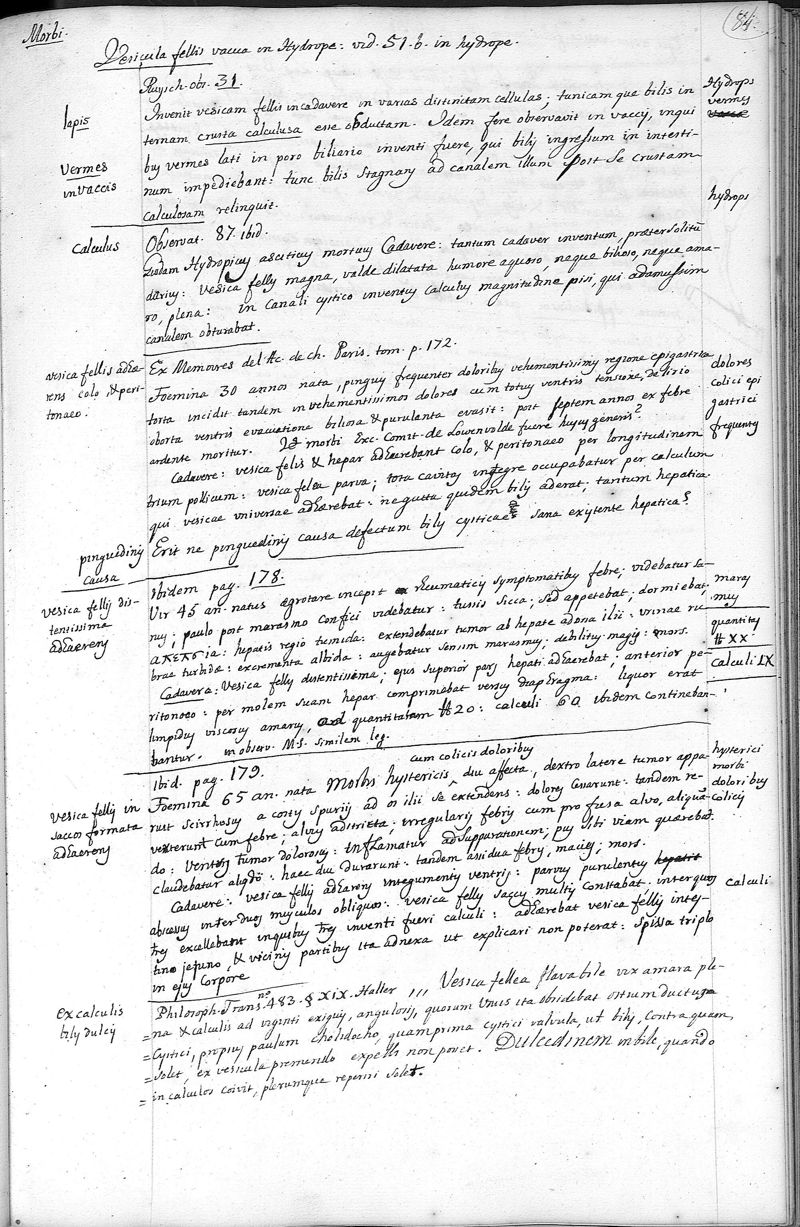 Morbi.
84.
Vesicula fellis vacua in Hydrope: vid. 51. b. in hydrope.
Ruysch. obs. 31.
Hydrops
vermes
lapis
Invenit vesicam fellis in cadavere in varias distinctam cellulas; tunicam que bilis in
ternam crusta calculosa esse obductam. Idem fere observavit in vaccis, in qui
vermes
in vaccis
bus vermes lati in poro biliario inventi fuere, qui bilis ingressum in intesti-
num impediebant: tunc bilis stagnans ad canalem illum post se crustam
calculosam relinquit.
hydrops
calculus
Observat. 87. ibid.
Quidam Hydropicus asciticus mortuus Cadavere: tantum cadaver inventum, præter solitũ
darius: vesica fellis magna, valde dilatata humore aquoso, neque bilioso, neque ama-
ro, plena: in canali cystico inventus calculus magnitudine pisi, qui adamussim
canalem obturabat.
Ex Memoires del Ac. de ch. Paris. tom. p. 172.
vesica fellis adhæ-
rens colo, & peri-
tonaeo.
dolores
colici epi
gastrici
frequentes
Foemina 30 annos nata, pinguis frequenter doloribus vehementissimis regione epigastrica
torta incidit tandem in vehementissimos dolores cum totius ventris tensione, delirio
oborta ventris evacuatione biliosa & purulenta evasit: post septem annos ex febre
ardente moritur. Id morbi Exc. Comit. de Lowenvolde fuere hujus generis?
Cadavere: vesica felis & hepar adhaerebant colo, & peritonaeo per longitudinem
trium pollicum: vesica fellea parva; tota cavitas integre occupabatur per calculum
qui vesicae universae adhaerebat: ne gutta quidem bilis aderat, tantum hepatica.
pinguedinis
causa
Erit ne pinguedinis causa defectum bilis cysticae sana existente hepatica?
Ibidem pag. 178.
vesica fellis dis-
tentissima
adhaerens
maras
mus
quantitas
℔ XX
Calculi LX
Vir 45 an. natus agrotare incepit Rheumaticis symptomatibus febre; videbatur sa-
nus; paulo post marasmo confici videbatur: tussis sicca; sed appetebat; dormiebat,
απεπσια: hepatis regio tumida: extendebatur tumor ab hepate ad ossa ilii: urinae ru
brae turbidae: excrementa albida: augebatur sensim marasmus, debilitas magis: mors.
Cadavere: Vesica fellis distentissima; ejus superior pars hepati adhaerebat; anterior pe-
ritonaeo: per molem suam hepar comprimebat versus diaphragma: liquor erat
limpidus viscosus amarus, ad quantitatem ℔ 20: calculi 60 ibidem contineban-
bantur. in observ. M.S. similem leg.
Ibid. pag. 179.
cum colicis doloribus
vesica fellis in
saccos formata
adhaerens
hysterici
morbi
doloribus
colicis
Foemina 65 an. nata Morbis hystericis diu affecta, dextro latere tumor appa-
rust scirrhosus a costis spuriis ad os ilii se extendens: dolores Guarunt: tandem re-
verterunt cum febre; alvus adstricta; irregularis febris cum profusa alvo, aliquã-
do: Ventris tumor dolorosus: inflamatur ad suppurationem; pus sibi viam quaerebat.
claudebatur aliqdo: haec diu durarunt: tandem assidua febris, macies; mors.
calculi
Cadavere: vesica fellis adhaerens integumentis ventris: parvus purulentus
abscessus inter duos musculos obliquos: vesica fellis saccis multis constabat. inter quos
tres excellebant in quibus tres inventi fueri calculi: adhærebat vesica fellis intes-
tino jejuno, & vicinis partibus ita adnexa ut explicari non poterat: spissa triplo
in ejus corpore
Ex calculis
bilis dulcis
Philosoph. Trans. no. 483. § XIX. Haller ,,, Vesica fellea flava bile vix amara ple-
= na & calculis ad viginti exiguis, angulosis, quorum unus ita obsidebat ostium ductus
= Cystici, propius paulum cholidocho, quam prima cystici valvula, ut bilis, contra quam
= solet, ex vesicula premendo expelli non posset. Dulcedinem in bile, quando
= in calculos coivit, plerumque reperiri solet.